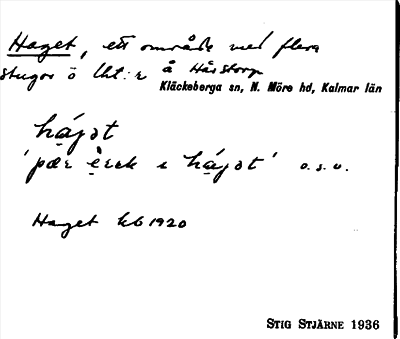 Haget, ett område med flera
stugor ö lht:r å Hårstorp
Kläckeberga sn, N. Möre hd, Kalmar län
há̱jət
'pær è̱rek i há̱jət' o.s.v.
Haget kb 1920
STIG STJÄRNE 1936